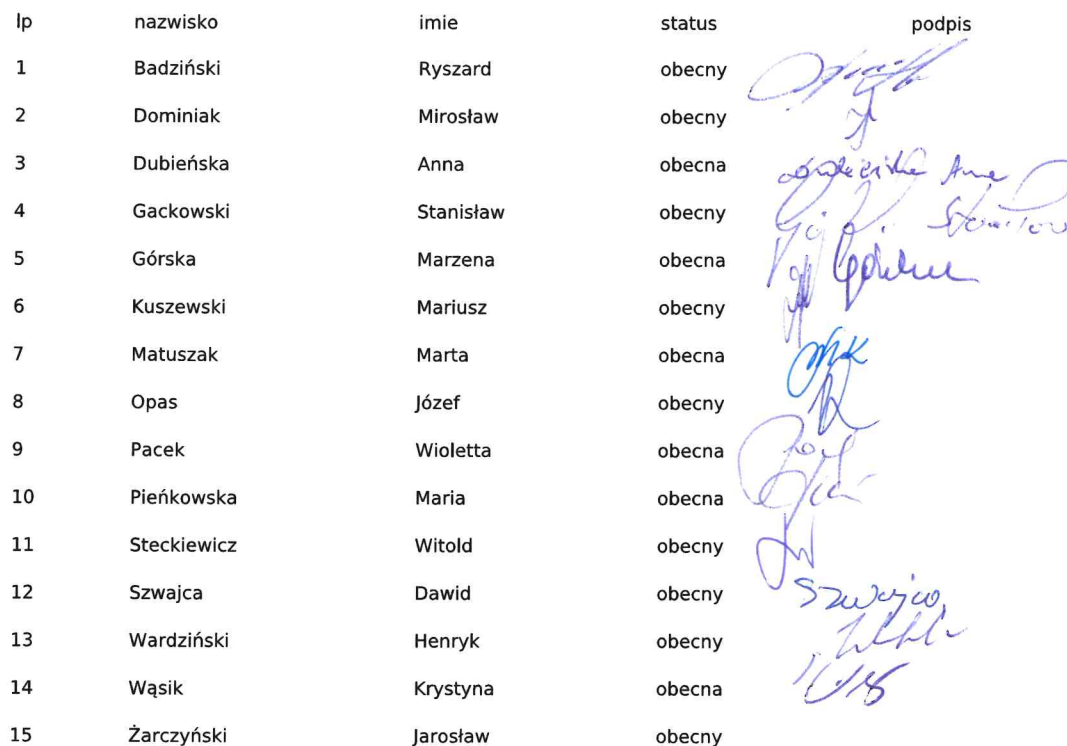 lp nazwisko imie status podpis
1 Badziński Ryszard obecny
2 Dominiak Mirosław obecny
3 Dubieńska Anna obecna
4 Gackowski Stanisław obecny
5 Górska Marzena obecna
6 Kuszewski Mariusz obecny
7 Matuszak Marta obecna
8 Opas Józef obecny
9 Pacek Wioletta obecna
10 Pieńkowska Maria obecna
11 Steckiewicz Witold obecny
12 Szwajca Dawid obecny Szwajca
13 Wardziński Henryk obecny
14 Wąsik Krystyna obecna
15 Żarczyński Jarosław obecny